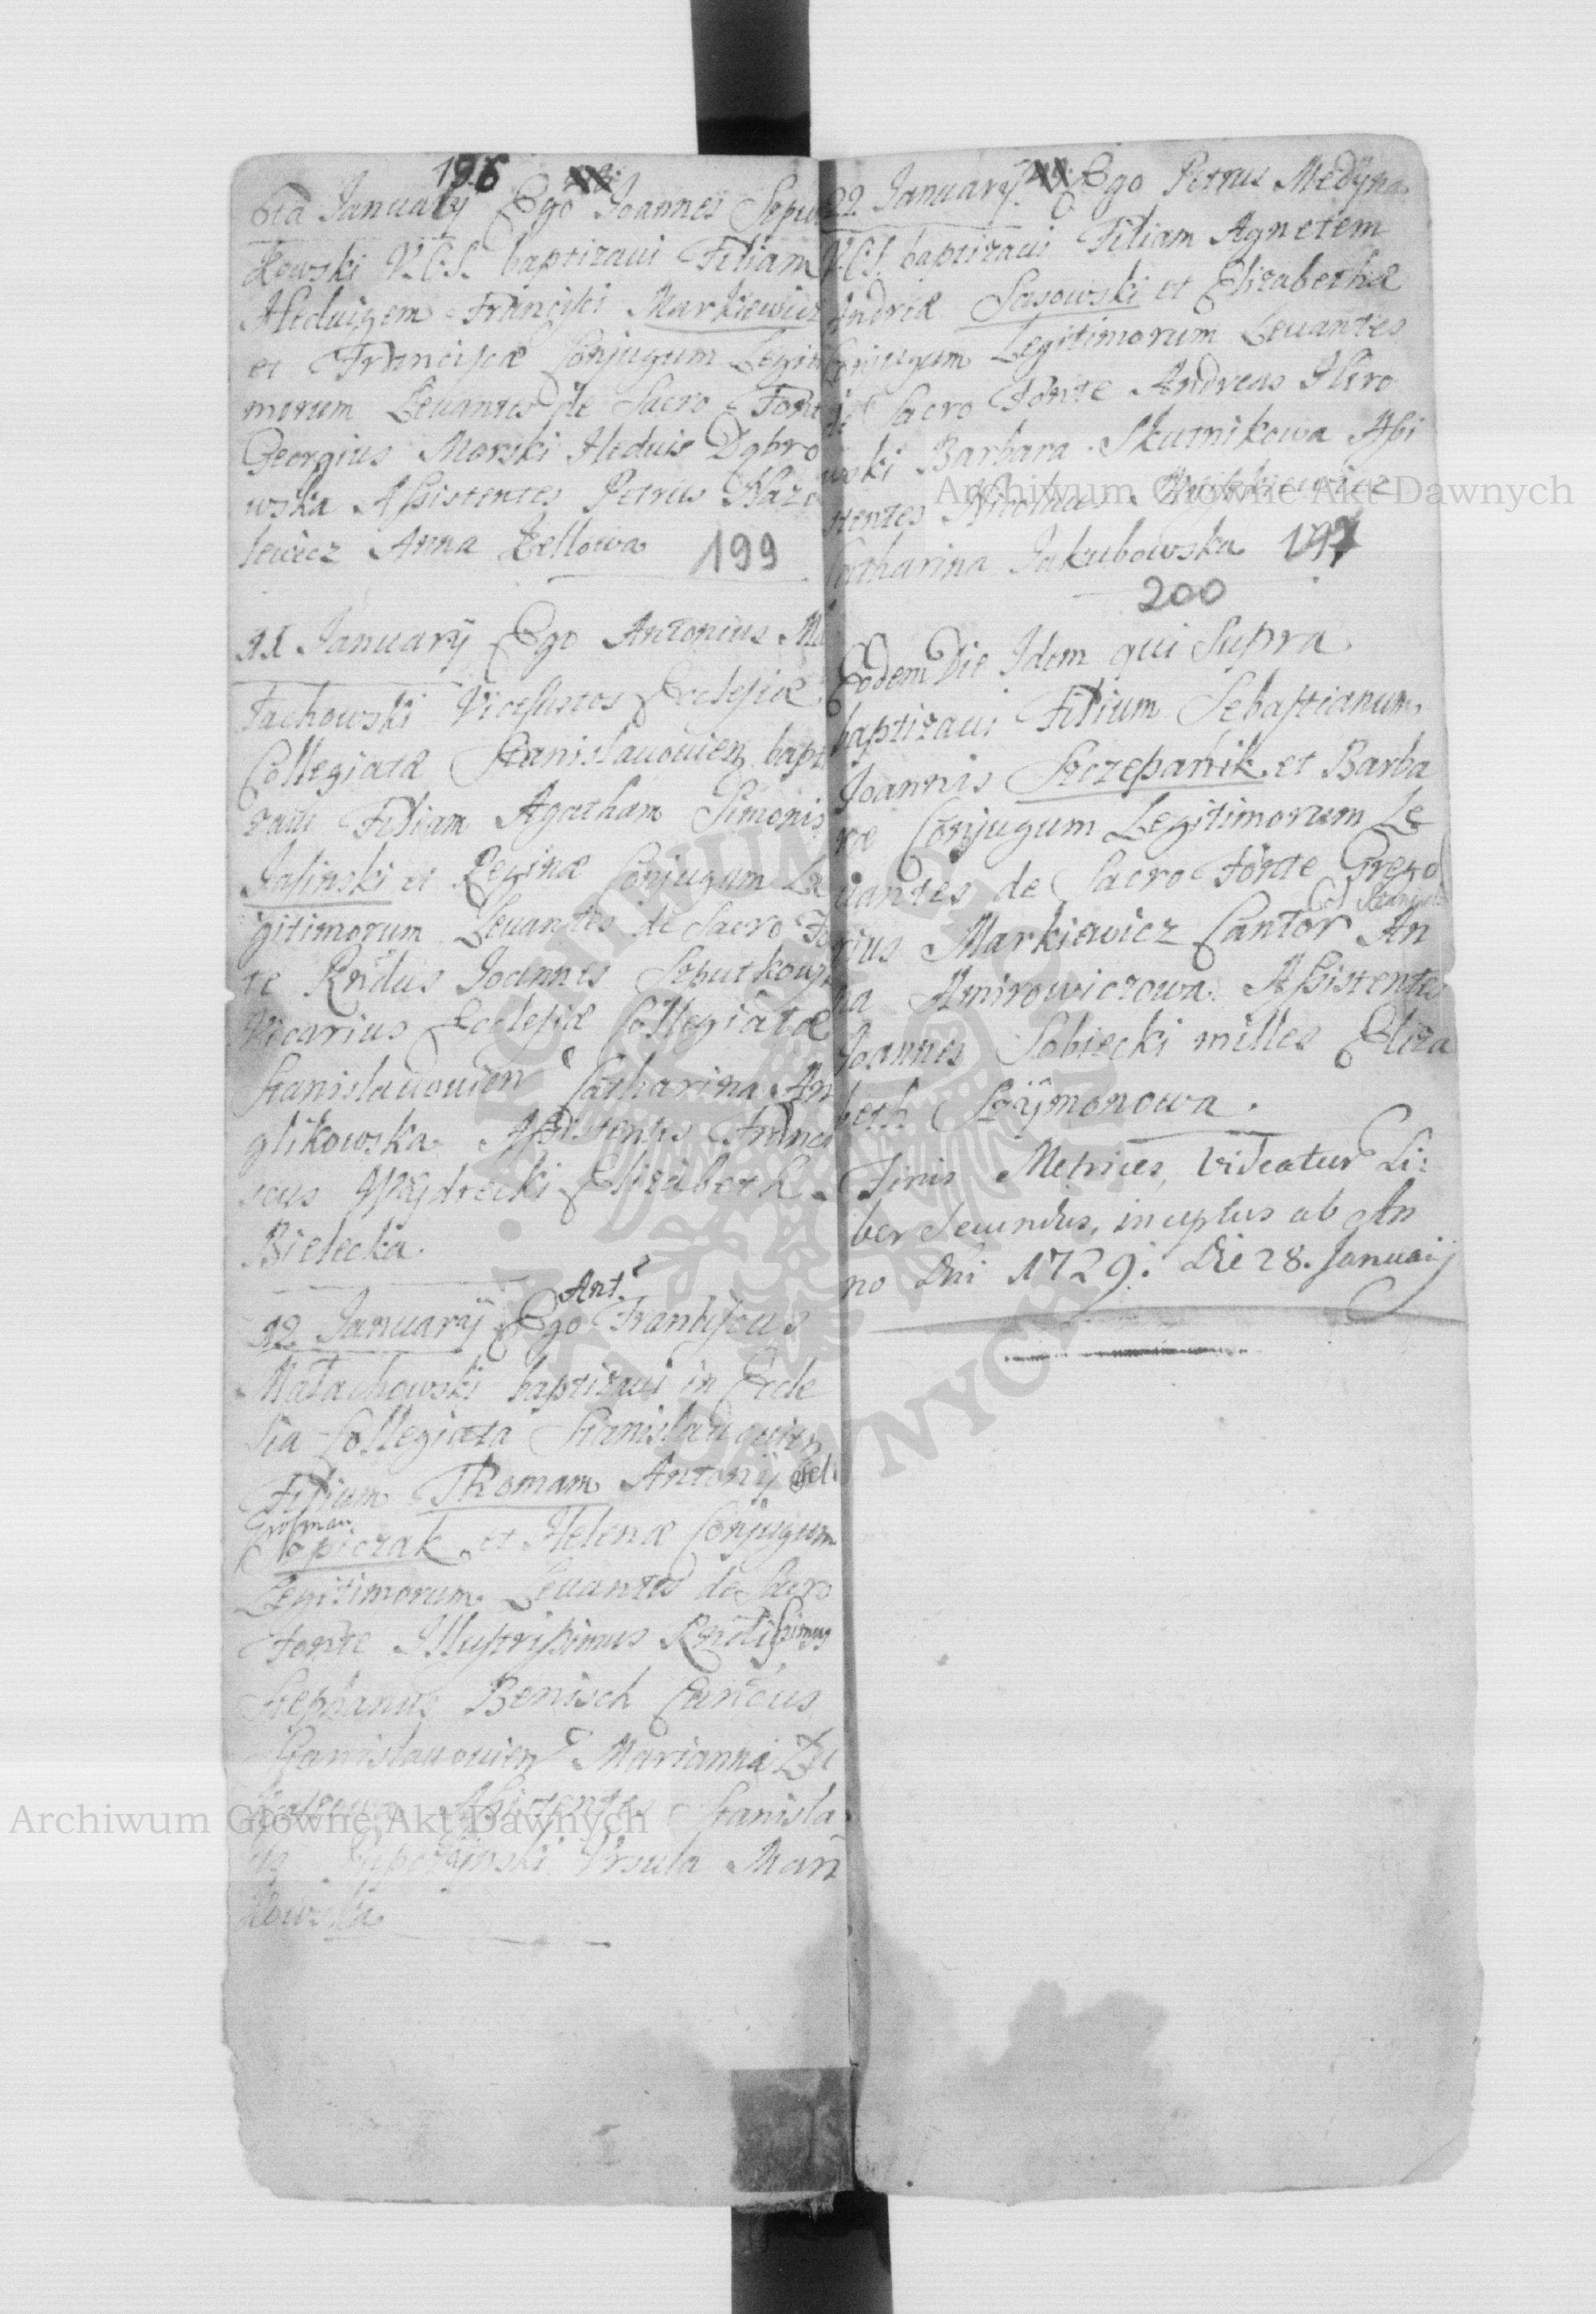 196
6ta Januarij Ego Joannes Seput
kowski V.C.S. baptizavi Filiam
Heduigem Francisci Markiewicz
et Franciscæ Conjugum Legiti
morum Levantes de Sacro Fonte
Georgius Morski Heduis Dąbro
wska Assistentes Petrus Kazi
lewicz Anna Zellowa
199
11 Januarij Ego Antonius Ma
łachowski Vicecustos Ecclesiæ
Collegiatæ Stanislauouien bapti
zaui Filiam Agatham Simonis
Jasinski et Reginæ Conjugum Le
gitimorum Levantes de Sacro Fon
te Rndus Joannes Seputkows
Vicarius Ecclesiæ Collegiatæ
Stanislauouien Catharina An
glikowska Assistentes Franci
scus Elisabeth
Bielecka
Ant
12 Januarij Ego Franciscus
Małachowski baptizaui in Eccle
sia Collegiata Stanislauouien
Filium Thomam Antonij
Grosman
et Helenæ Conjugum
Legitimorum Levantes de Sacro
Fonte Illustrissimus Rndissimus
Stephanus Benisch
Stanislauouien Marianna
Assistentes Stanisla
us Ursula Mań
kowska
22 Januarij Ego Petrus Medyna
V.C.S. baptizaui Filiam Agnetem
Andreæ Sasowski et Elizabethæ
Conjugum Legitimorum Leuantes
de Sacro Fonte Andreas Hiro
wski Barbara Skutnikowa Assi
stentes Nicolaus
Catharina Jakubowska 197
200
Eodem Die Idem qui Supra
baptizaui Filium Sebastianum
Joannis Szczepanik et Barba
ræ Conjugum Legitimorum Le
uantes de Sacro Fonte Grego
Col
rius Markiewicz Cantor An
na Amirowiczowa Assistentes
Joannes Sobiecki milles Eliza
beth Szÿmonowa.
Finis Metrices, Videatur Li:
ber Secundus, inceptus ab An
no Dni 1729. Die 28. Januarij
Archiwum Główne Akt Dawnych
Archiwum Główne Akt Dawnych